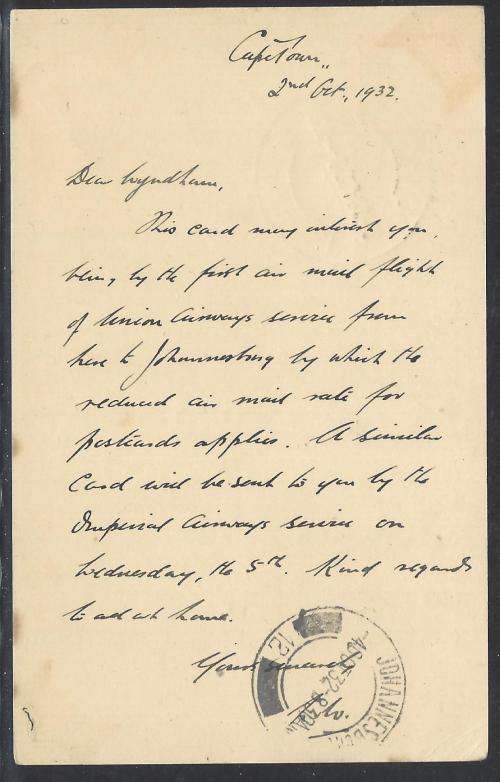 CapeTown,,
2nd Oct., 1932.
Dear Wyndham,
This card may interest you,
being by the first air mail flight
of Union Airways service from
here to Johannesburg by which the
reduced air mail rate for
postcards applies. A similar
card will be sent to you by the
Imperial Airways service on
Wednesday, the 5th. Kind regards
to all at home.
Yours sincerely
JOHANNESBURG
12
4 OCT 32